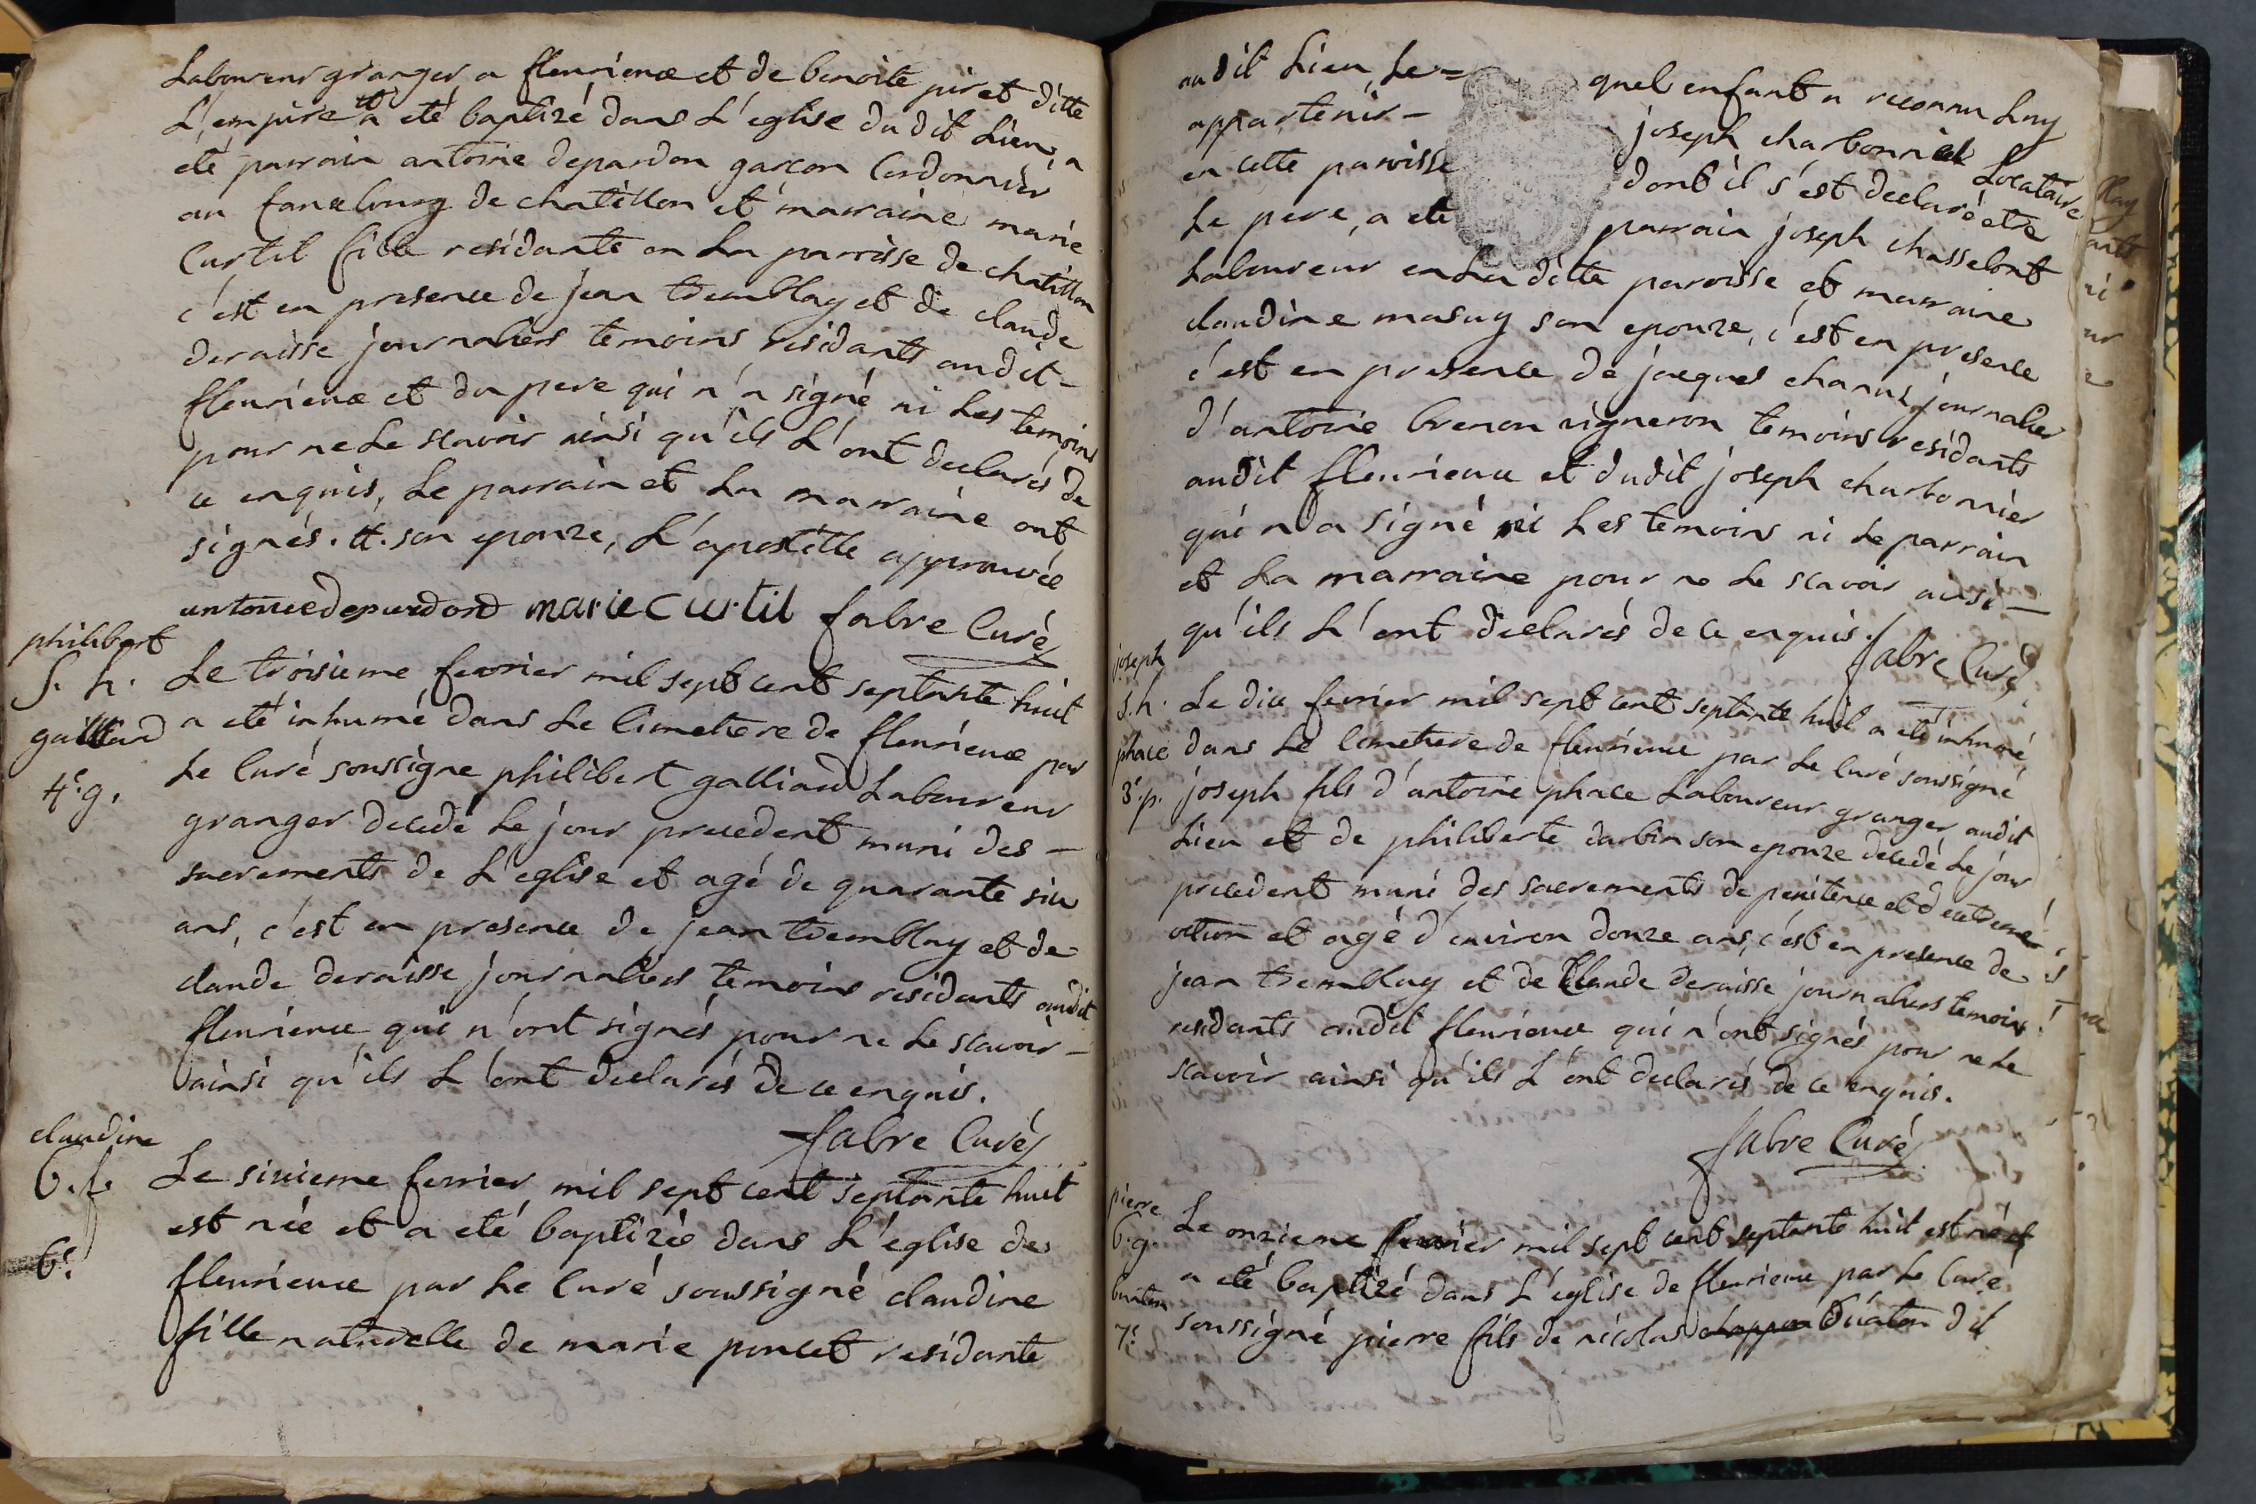 Laboureur granger a fleurieux et de benoite piret ditte
L'empire # a eté baptizé dans L'eglise du dit Lieu, a
eté parrain antoine depardon garçon Cordonnier
au fauxbourg de chatillon et marraine marie
Curtil fille residante en La parroisse de chatillon
c'est en presence de jean tremblay et de claude
deraisse journaliers temoins residants audit -
fleurieux et du pere qui n'a signé ni Les temoins
pour ne Le scavoir ainsi qu'ils L'ont declarés de
ce enquis, Le parrain et La marraine ont
signés. #. son epouze, L'apostille approuvée
antoine depardond marie Curtil fabre Curé
philibert
S. h.
gailliard
4e. g.
Le troisieme fevrier mil sept cent septante huit
a eté inhumé dans Le Cimetiere de fleurieux par
Le Curé soussigne philibert galliard Laboureur
granger decedé Le jour precedent muni des -
sacrements de L'eglise et agé de quarante six
ans, c'est en presence de jean tremblay et de
claude deraisse journaliers temoins residents audit
fleurieux qui n'ont signés pour ne Le scavoir -
ainsi qu'ils L'ont declarés de ce enquis.
fabre Curé
claudine
b. f.
6e.
Le sixieme fevrier mil sept cent septante huit
est née et a eté baptizée dans L'eglise de
fleurieux par Le Curé soussigné claudine
fille naturelle de marie poncet residante
audit Lieu, Le= quel enfant a reconnu Luy
appartenir - joseph charbonnier Locataire
en cette paroisse dont il s'est declaré etre
Le pere, a eté parrain joseph chasselont
Laboureur en La ditte paroisse et marraine
claudine masuy son epouze, c'est en presence
c'est en presence de jacques charux journalier
d'antoine brenon vigneron temoins residants
audit fleurieux et dudit joseph charbonnier
qui n'a signé ni Les temoins ni Le parrain
et La marraine pour ne Le scavoir ainsi -
qu'ils L'ont declarés de ce enquis.
fabre Curé
joseph
s. h.
phace
3e. p.
Le dix fevrier mil sept cent septante huit a eté inhumé
dans Le Cimetiere de fleurieux par Le Curé soussigné
joseph fils d'antoine phace Laboureur granger audit
Lieu et de philiberte darbin son epouze decedé Le jour
precedent muni des sacrements de penitence et d'extreme
oction et agé d'environ douze ans, c'est en presence de
jean tremblay et de Claude deraisse journaliers temoins
residants audit fleurieux qui n'ont signés pour ne Le
scavoir ainsi qu'ils L'ont declarés de ce enquis.
fabre Curé
pierre
b. g.
buiton
7e.
Le onzieme fevrier mil sept cent septante huit est né et
a eté baptizé dans L'eglise de fleurieux par Le Curé
soussigné pierre fils de nicolas buiton dit